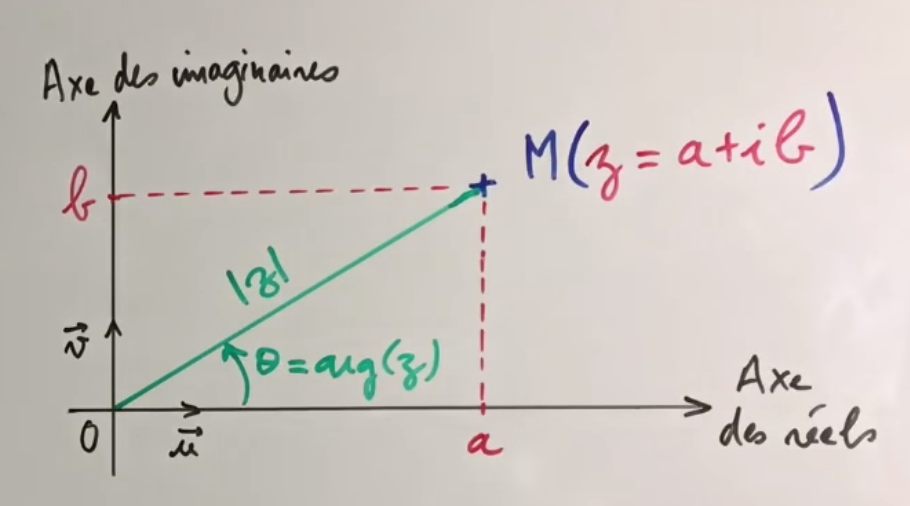 Axe des imaginaires
M(z = a+ib)
b
|z|
v⃗
θ = arg(z)
Axe
des réels
O
u⃗
a